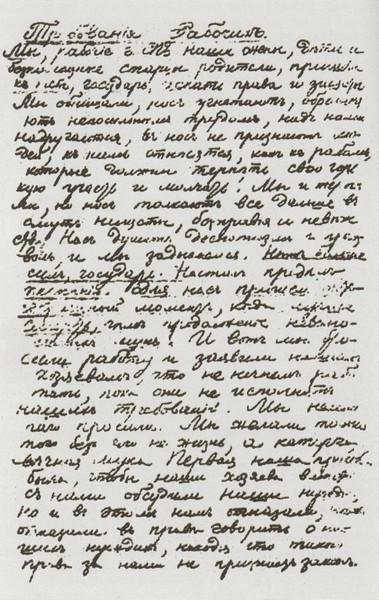 Требованія Рабочихъ
Мы, рабочіе г. наши жены, дѣти и
безпомощные старцы родители, пришли
къ тебѣ, государь, искати правды и защиты
Мы обнищали, насъ угнетаютъ, обременя
ютъ непосильнымъ трудомъ, надъ нами
надругаются, въ насъ не признаютъ лю
дей, къ намъ относятся, какъ къ рабамъ,
которые должны терпѣть свою горь
кую участь и молчать. Мы и терпѣ
ли, но насъ толкаютъ все дальше въ
омутъ нищеты, безправія и невѣже
ства. Насъ душитъ деспотизмъ и произ
волъ, и мы задыхаемся. Нѣтъ больше
силъ, государь. Насталъ предѣлъ
терпѣнію. Для насъ пришелъ
моментъ, когда лучше
смерть, чѣмъ продолженіе невыно
симыхъ мукъ. И вотъ мы бро
сили работу и заявили нашимъ
хозяевамъ, что не начнемъ рабо
тать, пока они не исполнятъ
нашихъ требованій. Мы не много
чаго просили. Мы желали только
того безъ чего не жизнь, а каторга
вѣчная мука. Первая наша просьба
была, чтобы наши хозяева вмѣстѣ
съ нами обсудили наши нужды,
но и въ этомъ намъ отказали,
отказали въ правѣ говорить о на
шихъ нуждахъ, находя что такого
права за нами не признаетъ законъ.